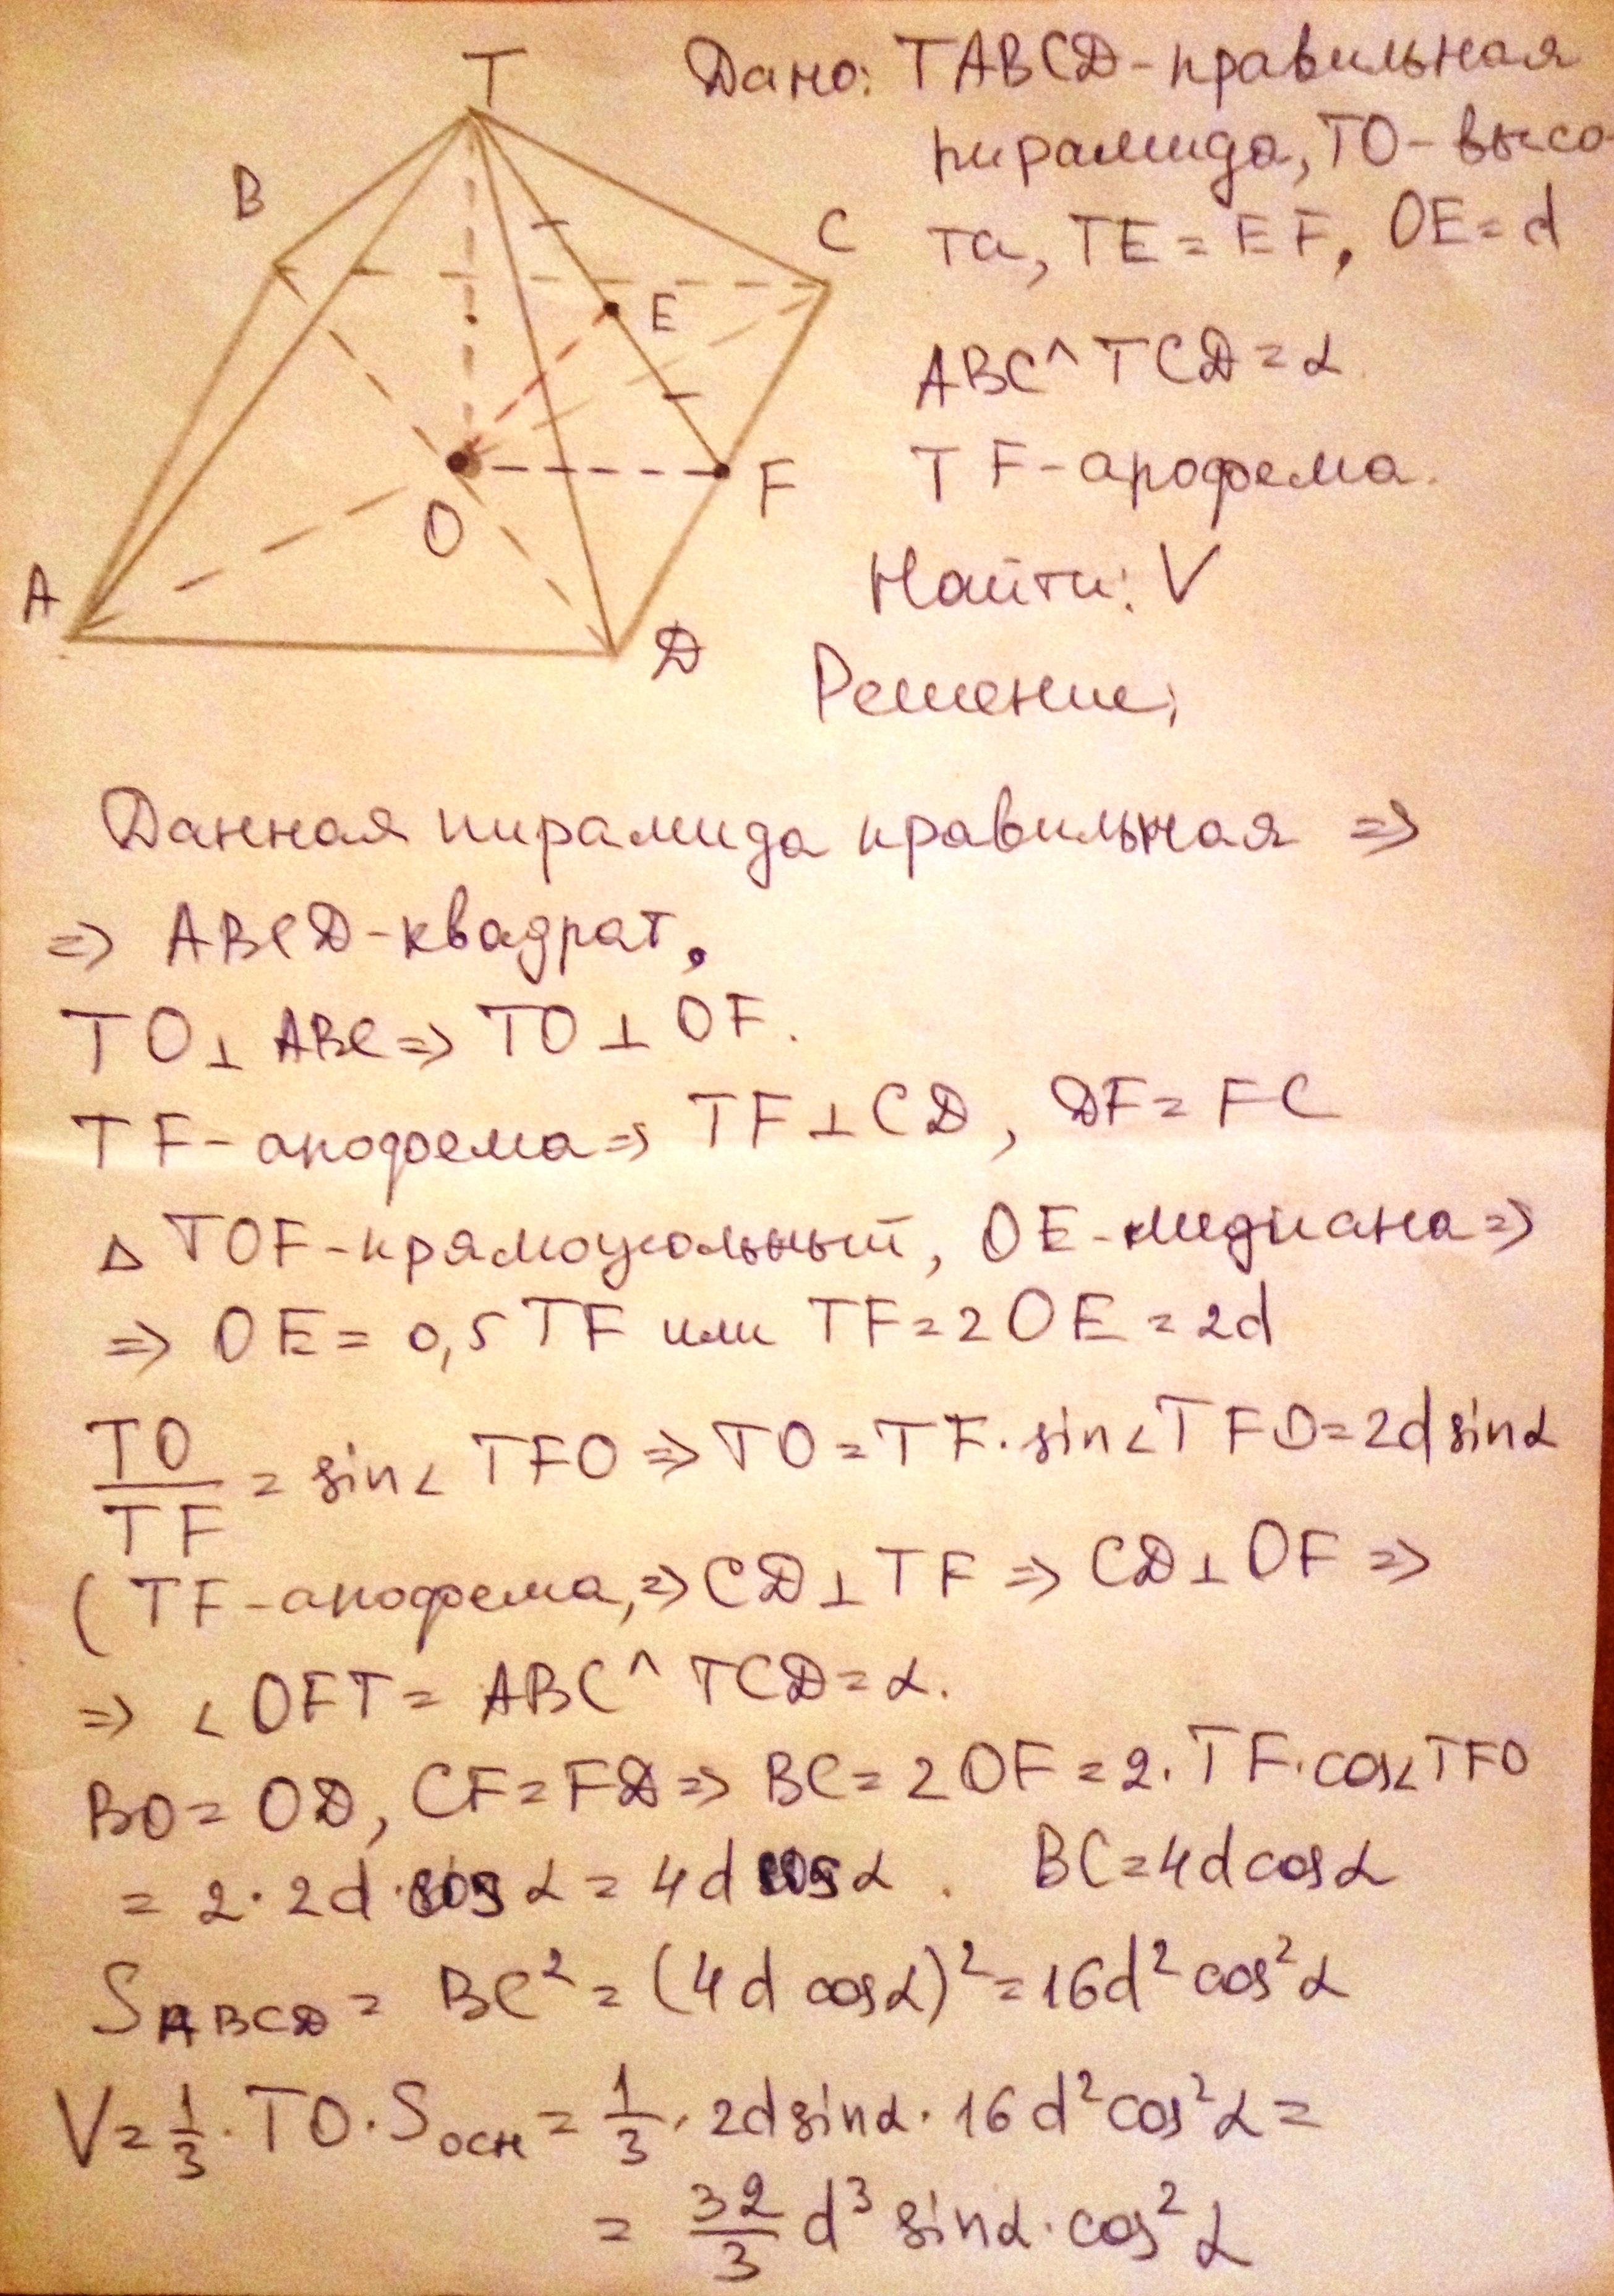 T
B
C
E
O
F
A
D
Дано: TABCD-правильная
пирамида, TO-высо-
та, TE = EF, OE = d
ABC^TCD = α
TF-апофема.
Найти: V
Решение:
Данная пирамида правильная ⇒
⇒ ABCD-квадрат.
TO ⊥ ABC ⇒ TO ⊥ OF.
TF-апофема ⇒ TF ⊥ CD, DF = FC
Δ TOF-прямоугольный, OE-медиана ⇒
⇒ OE = 0,5 TF или TF = 2OE = 2d
TO/TF = sin∠TFO ⇒ TO = TF·sin∠TFO = 2d sinα
(TF-апофема, ⇒ CD ⊥ TF ⇒ CD ⊥ OF ⇒
⇒ ∠OFT = ABC^TCD = α.
BO = OD, CF = FD ⇒ BC = 2OF = 2·TF·cos∠TFO
= 2·2d·cosα = 4d cosα. BC = 4d cosα
S_ABCD = BC² = (4d cosα)² = 16d² cos²α
V = 1/3·TO·S_осн = 1/3·2d sinα·16d² cos²α =
= 32/3 d³ sinα·cos²α